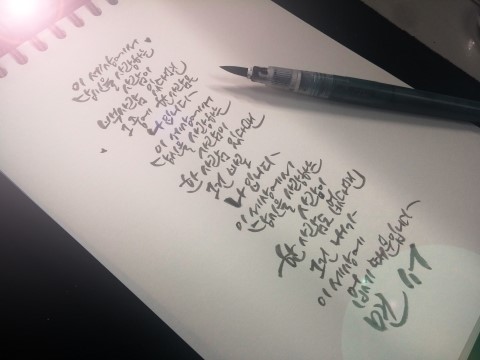 이 세상에서
당신을 사랑하는
사람이
있다면
그 중에 한 사람은
나 입니다~
이 세상에서
당신을 사랑하는
사람이
한 사람 있다면
그건 바로
나 입니다~
이 세상에서
당신을 사랑하는
사람이
한 사람도 없다면
그건 내가
이 세상에
없기 때문입니다~